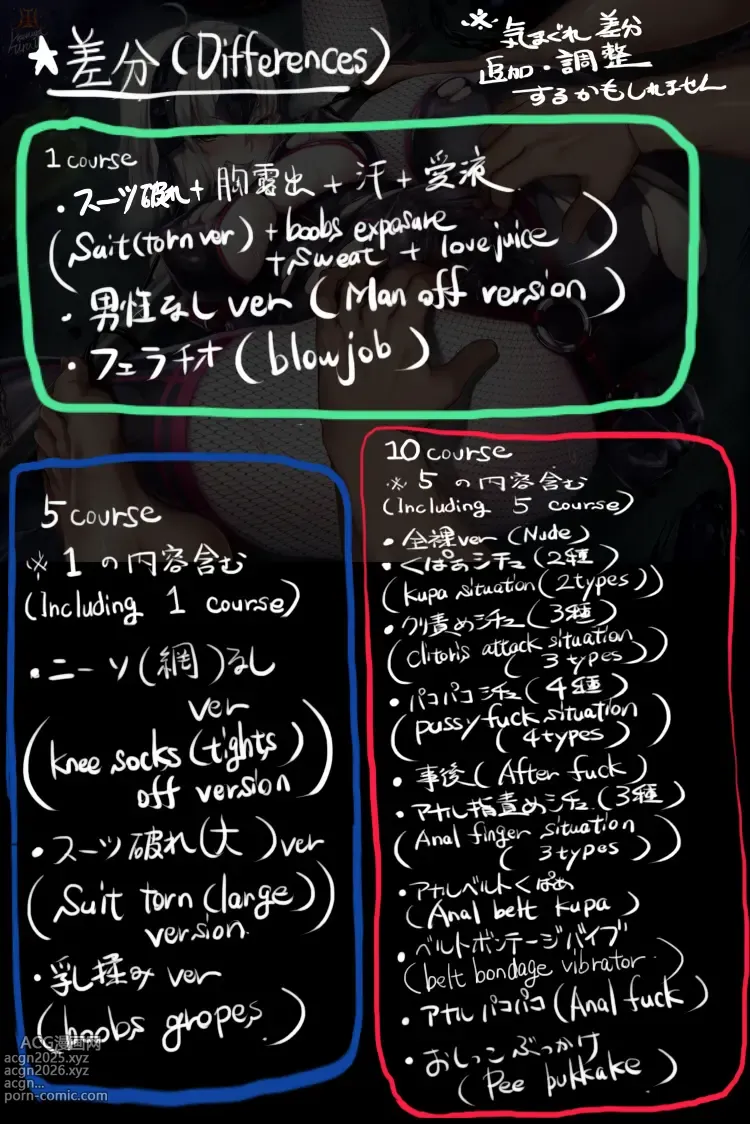 ★差分(Differences)
※気まぐれ差分
追加・調整
するかもしれません
1 course
・スーツ破れ+胸露出+汗+愛液
(Suit(torn ver)+boobs exposure
+sweat + love juice)
・男性なし ver (Man off version)
・フェラチオ(blowjob)
5 course
※1の内容含む
(Including 1 course)
・ニーソ(網)なし
ver
(knee socks(tights)
off version)
・スーツ破れ(大)ver
(Suit torn (large)
version)
・乳揉み ver
(boobs gropes)
10 course
※5の内容含む
(Including 5 course)
・全裸ver (Nude)
・くぱぁシチュ(2種)
(kupa situation(2types))
・クリ責めシチュ(3種)
(clitoris attack situation
(3 types))
・パコパコシチュ(4種)
(pussy fuck situation
(4types))
・事後(After fuck)
・アナル指責めシチュ(3種)
(Anal finger situation
(3types))
・アナルベルトくぱぁ
(Anal belt kupa)
・ベルトボンテージバイブ
(belt bondage vibrator)
・アナルパコパコ(Anal fuck)
・おしっこぶっかけ
(Pee bukkake)
ACG漫画网
acgn2025.xyz
acgn2026.xyz
acgn...
porn-comic.com